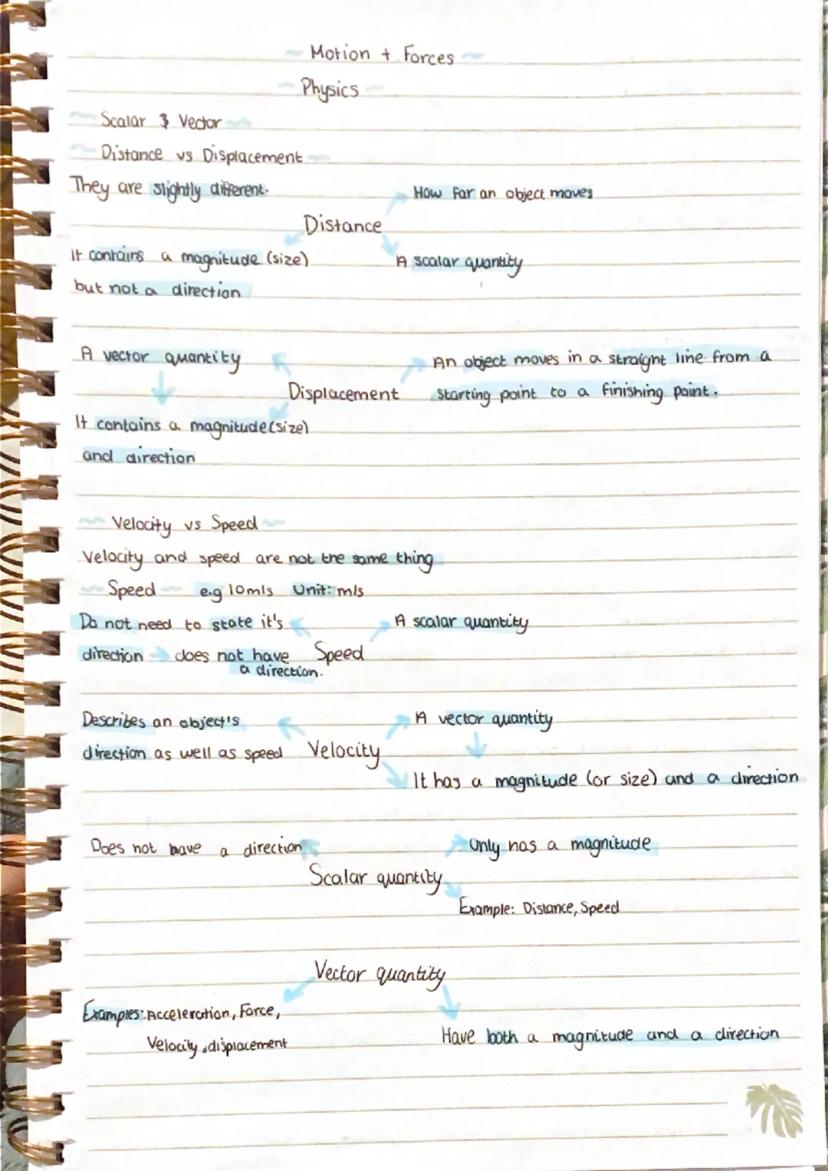 Motion + Forces
Physics
Scalar & Vector
Distance vs Displacement
They are slightly different.
How far an object moves
Distance
It contains a magnitude (size)
but not a direction
A scalar quantity
A vector quantity
An object moves in a straight line from a
starting point to a finishing point.
Displacement
It contains a magnitude (size)
and direction
Velocity vs Speed
Velocity and speed are not the same thing
Speed e.g 10m/s Unit: m/s
Do not need to state it's
direction does not have
a direction.
A scalar quantity
Speed
Describes an object's
direction as well as speed
A vector quantity
Velocity
It has a magnitude (or size) and a direction
Does not have a direction
Only has a magnitude
Scalar quantity
Example: Distance, Speed
Vector quantity
Examples: Acceleration, Force,
Velocity, displacement
Have both a magnitude and a direction